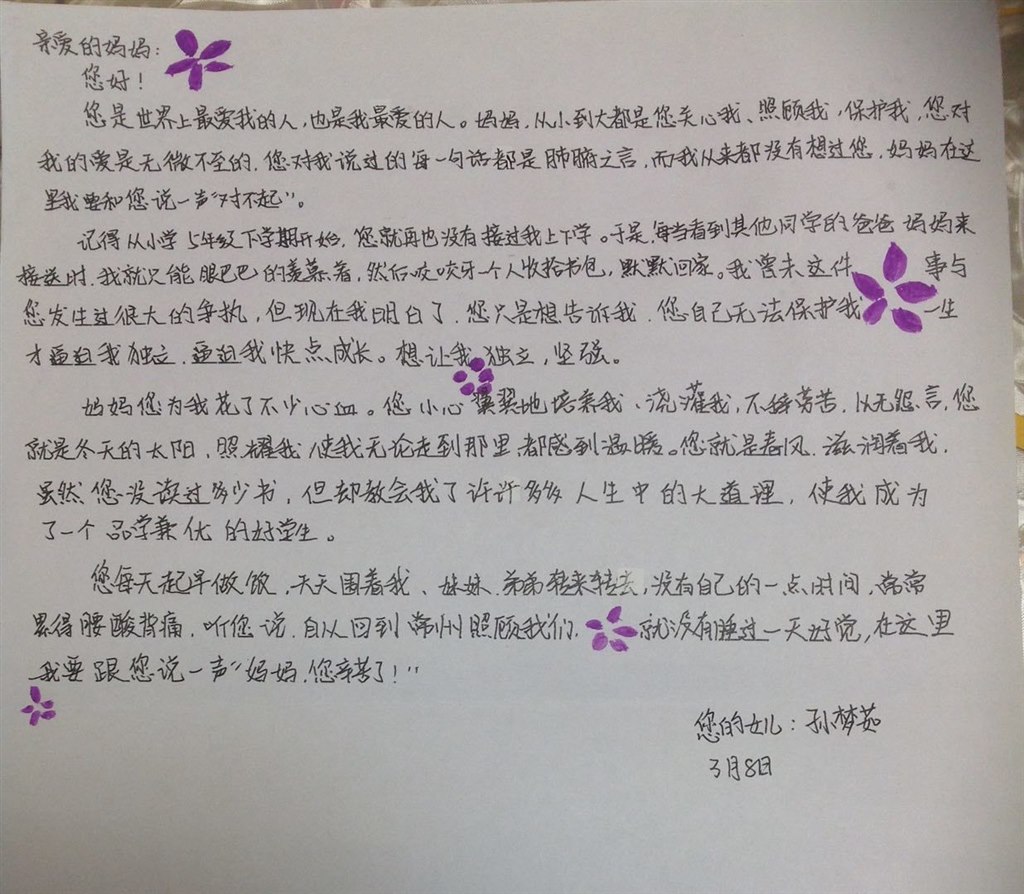 亲爱的妈妈:
您好!
您是世界上最爱我的人,也是我最爱的人。妈妈,从小到大都是您关心我、照顾我,保护我,您对
我的爱是无微不至的,您对我说过的每一句话都是肺腑之言,而我从来都没有想过您,妈妈在这
里我要和您说一声“对不起”。
记得从小学5年级下学期开始,您就再也没有接过我上下学。于是,每当看到其他同学的爸爸妈妈来
接送时,我就只能眼巴巴的羡慕着,然后咬咬牙一个人收拾书包,默默回家。我曾未这件事与
您发生过很大的争执,但现在我明白了,您只是想告诉我,您自己无法保护我一生
才逼迫我独立,逼迫我快点成长。想让我独立,坚强。
妈妈您为我花了不少心血。您小心翼翼地培养我、浇灌我,不辞劳苦,从无怨言,您
就是冬天的太阳,照耀我,使我无论走到那里都感到温暖。您就是春风,滋润着我,
虽然您没读过多少书,但却教会我了许许多多人生中的大道理,使我成为
了一个品学兼优的好学生。
您每天起早做饭,天天围着我、妹妹、弟弟转来转去,没有自己的一点时间,常常
累得腰酸背痛,听您说,自从回到常州照顾我们,就没有睡过一天好觉,在这里
我要跟您说一声“妈妈,您辛苦了!”
您的女儿:孙梦茹
3月8日